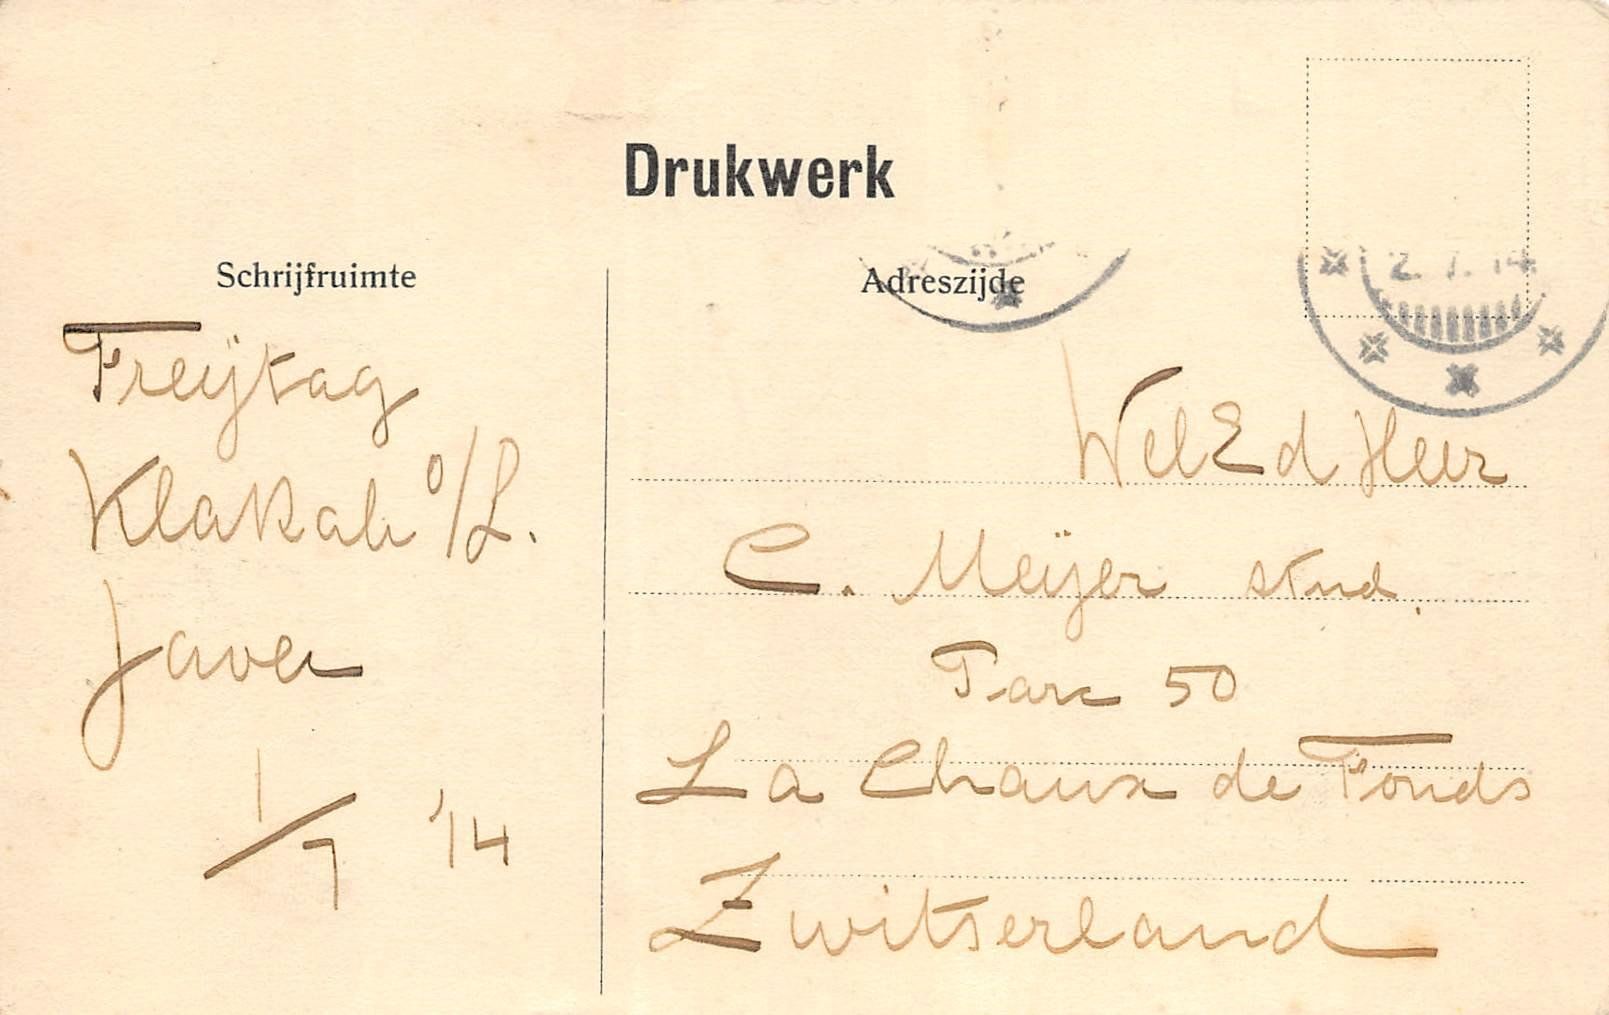 Drukwerk
Schrijfruimte
Adreszijde
2. 7. 14
Freÿtag
Klakah o/L.
Java
1/7 '14
WelEd Heer
C. Meÿer stud.
Parc 50
La Chaux de Fonds
Zwitserland